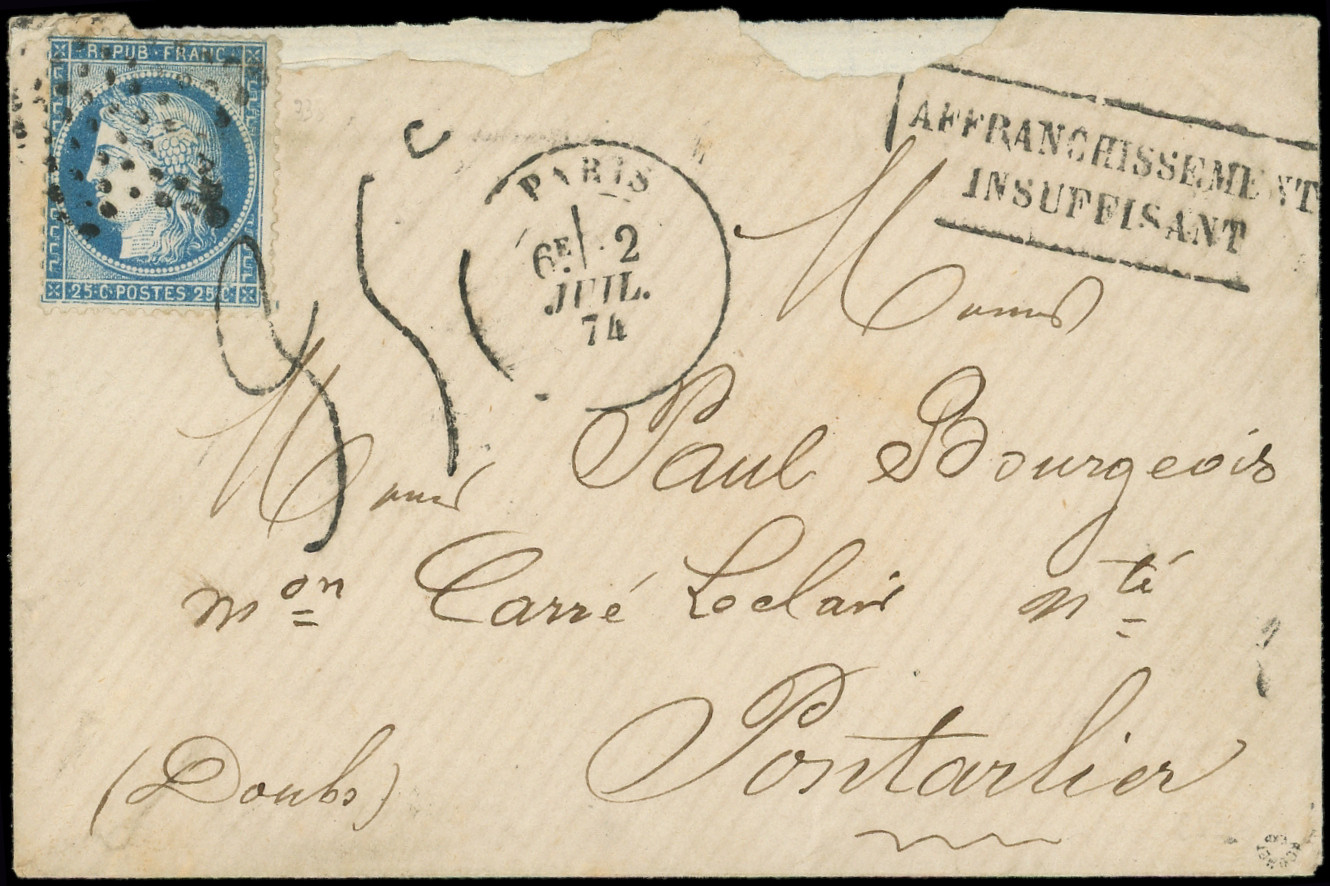 REPUB · FRANC
25 · C · POSTES 25 C
PARIS
6E 2
JUIL.
74
AFFRANCHISSEMENT
INSUFFISANT
Monsr
Paul Bourgeois
Monsr
mon Carré Leclair nté
Pontarlier
(Doubs)